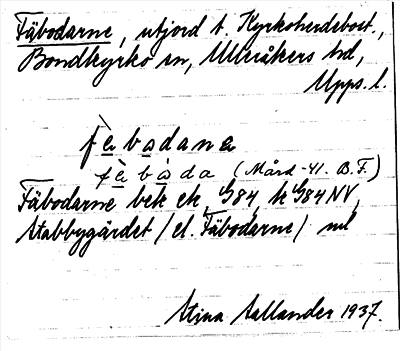 Fäbodarne, utjord t. Kyrkoherdebost.,
Bondkyrko sn, Ulleråkers hd,
Upps. l.
fèbodana
fèbòda (Mård -41. B.F.)
Fäbodarne bete ek, G84, k G84 NV,
Stabbygärdet / el. Fäbodarne /
Stina Sallander 1937.